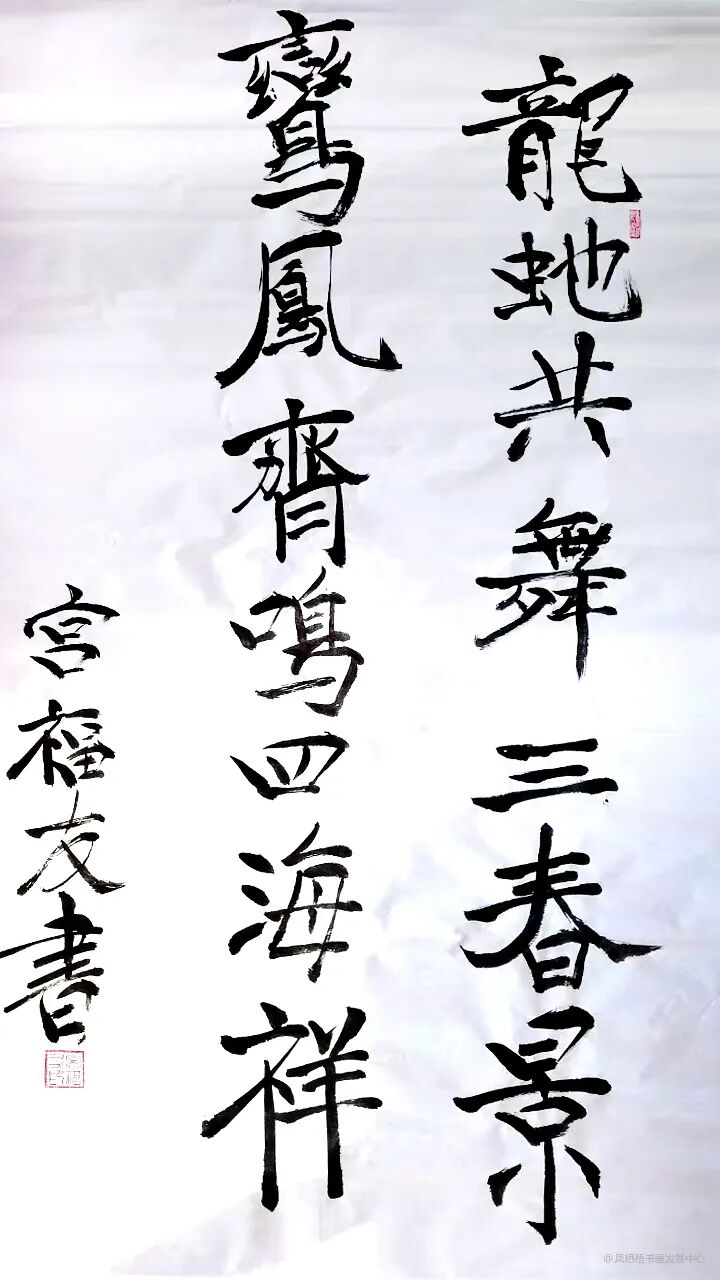 龍虵共舞三春景
鸞鳳齊鳴四海祥
宮福友書
@凤栖梧书画发展中心